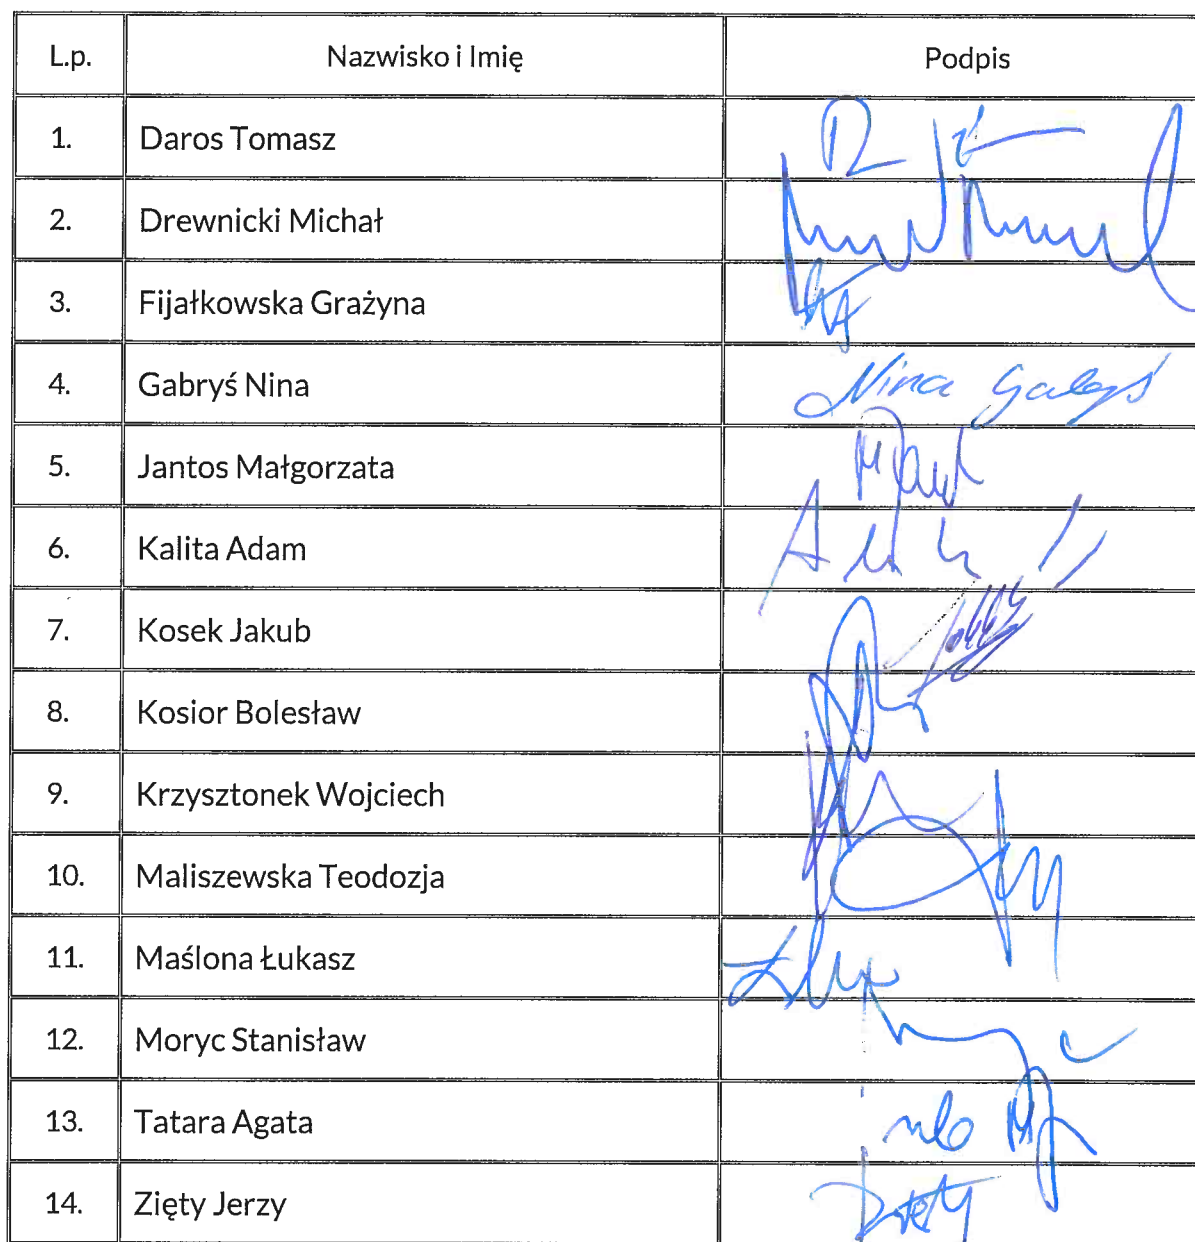 L.p. Nazwisko i Imię Podpis
1. Daros Tomasz
2. Drewnicki Michał
3. Fijałkowska Grażyna
4. Gabryś Nina Nina Gabryś
5. Jantos Małgorzata
6. Kalita Adam
7. Kosek Jakub
8. Kosior Bolesław
9. Krzysztonek Wojciech
10. Maliszewska Teodozja
11. Maślona Łukasz
12. Moryc Stanisław
13. Tatara Agata
14. Zięty Jerzy